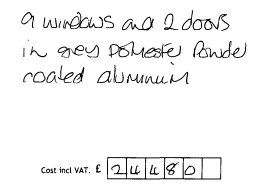 9 windows and 2 doors
in grey Polyester Powder
coated aluminium
Cost incl VAT. £ 24480